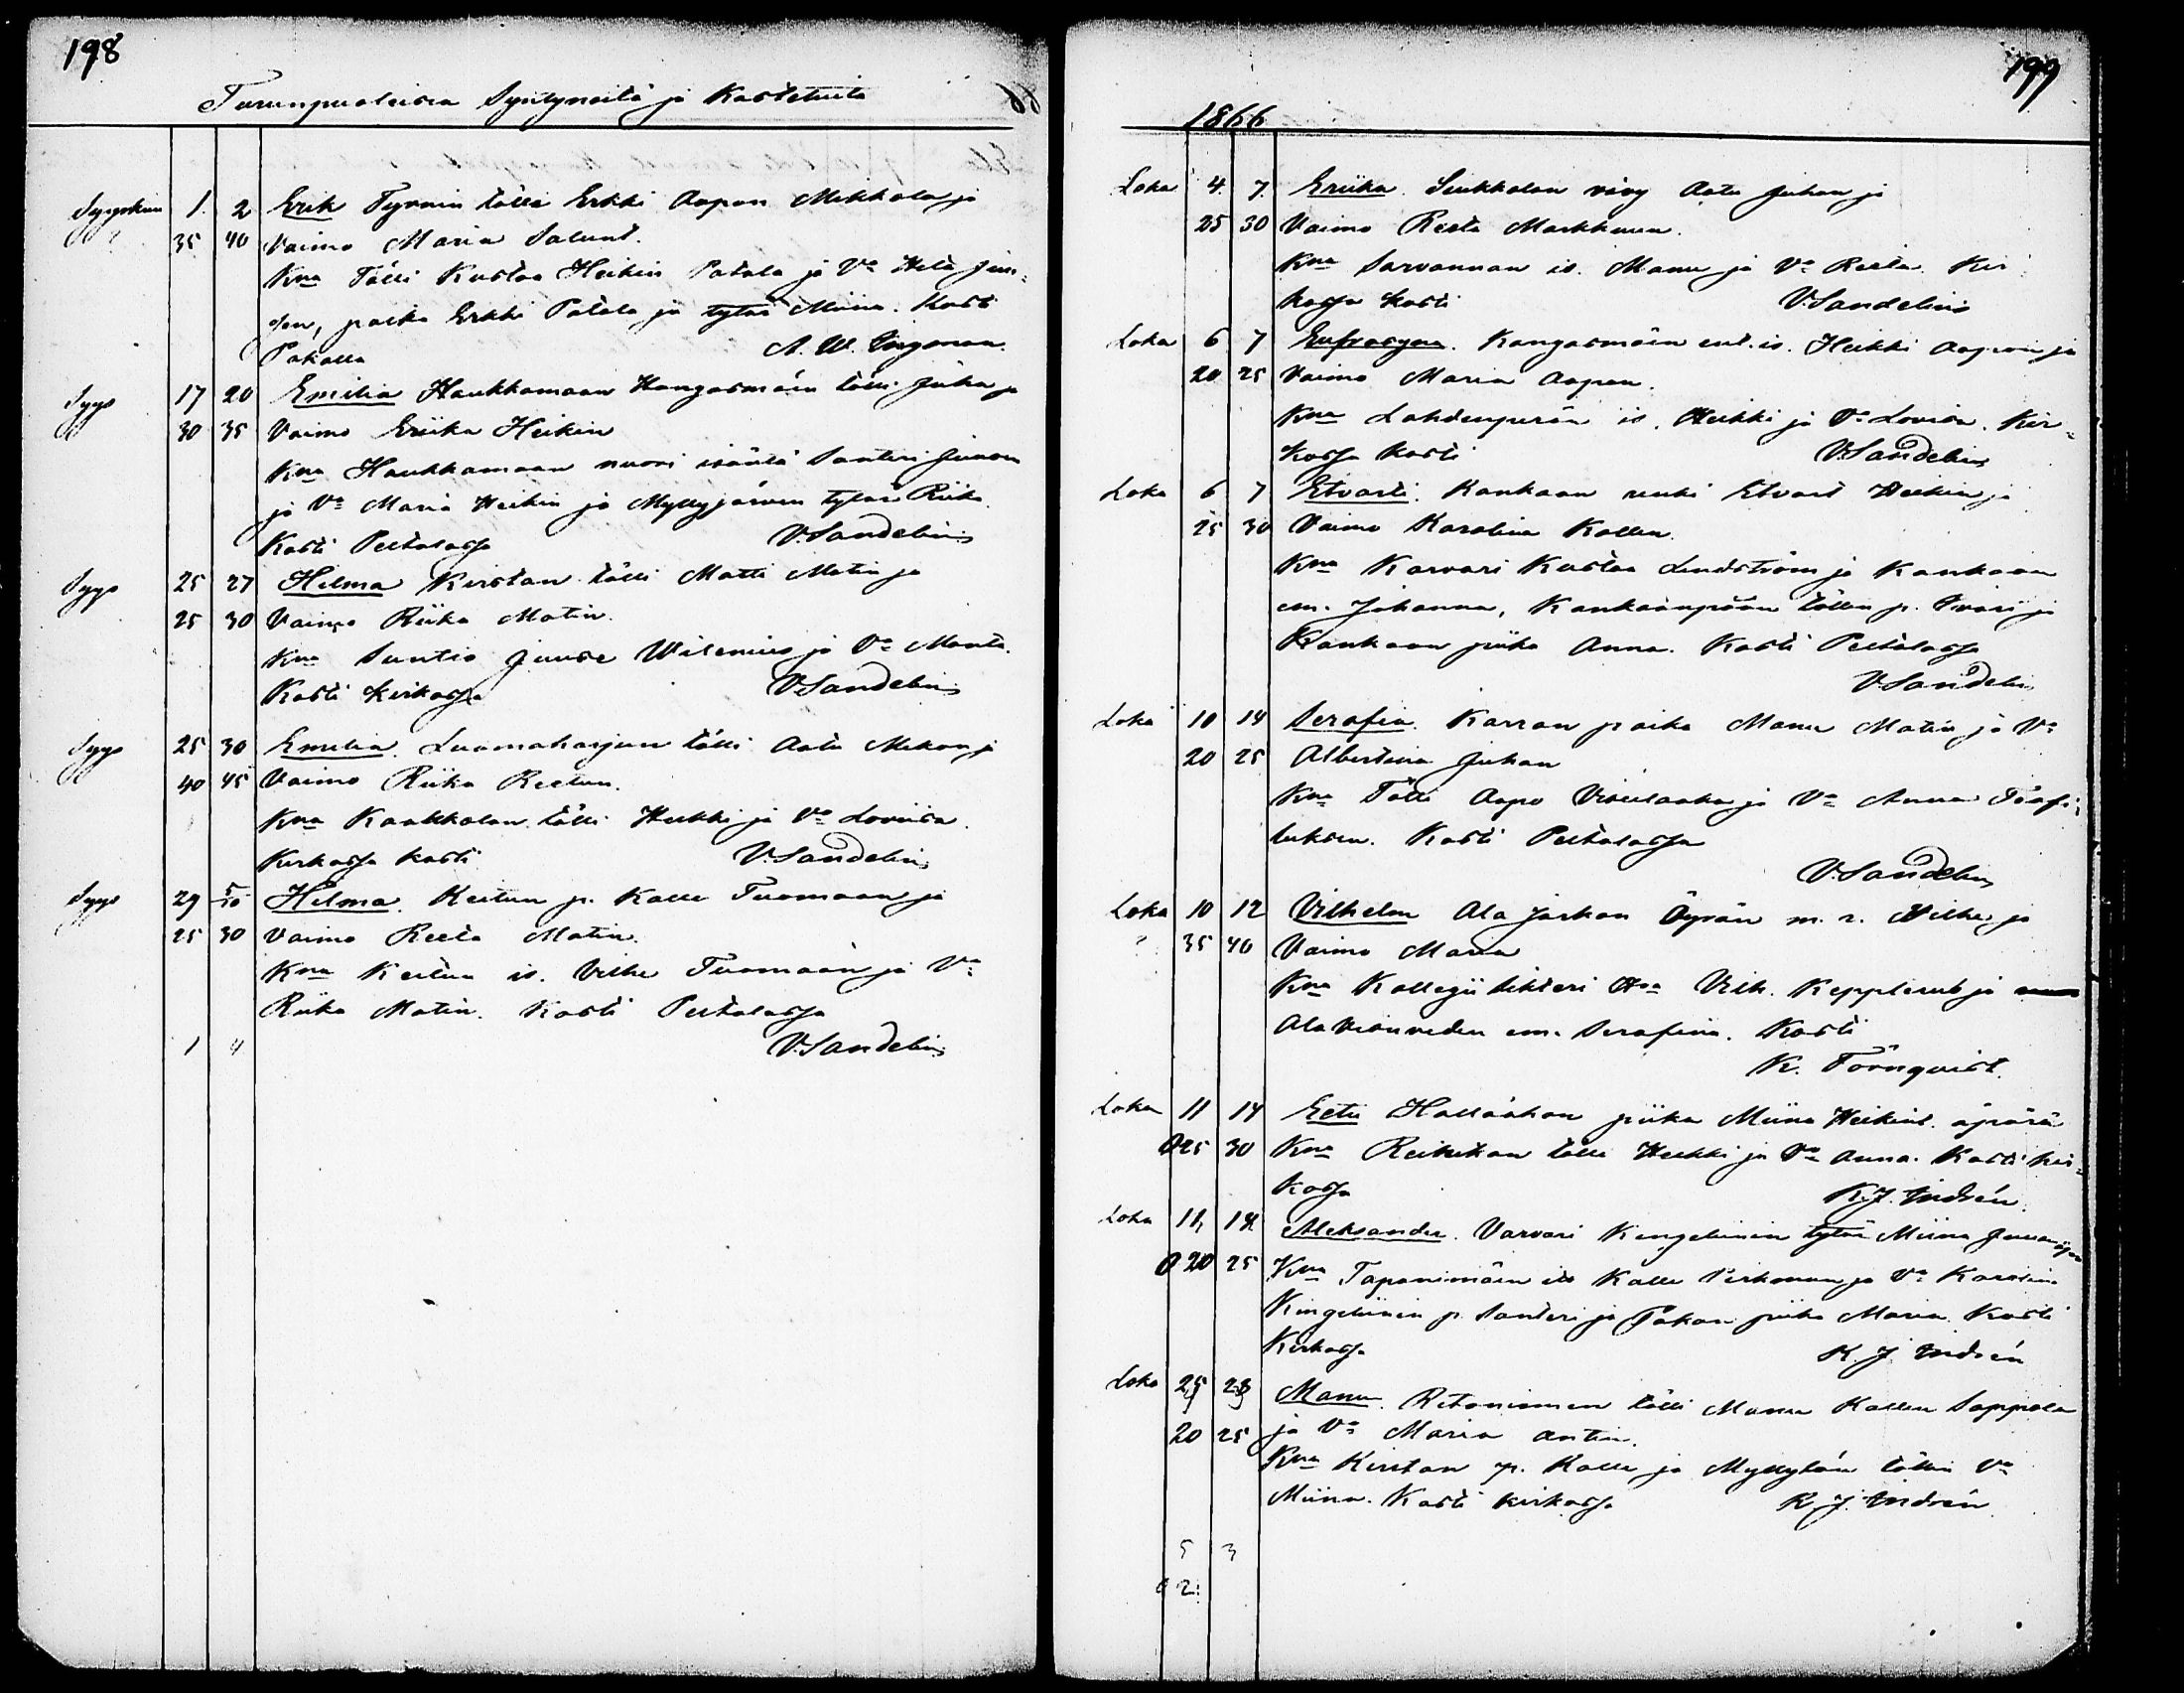 198
Turunpuoleisia Syntyneitä ja Kastetuita
Syyskuu 1. 2 Erik Tyrnin tölli Erkki Aapon Mikkola ja
35 40 Vaimo Maria Salunt.
Kna Tölli Kustaa Heikin Patala ja Va Heta
poika Erkki Patala ja tytär Miina. Kast
A. W. Ingman
Syys 17 20 Emilia Haukkamaan Kangasmäen tölli Juha ja
30 35 Vaimo Eriika Heikin
Kna Haukkamaan nuori isäntä Santeri Juanon
ja Va Maria Heikin ja Myllyjärven tytär Riika
Kasti Peltolassa V. Sandelin
Syys 25 27 Hilma Kirstan tölli Matti Matin ja
25 30 Vaimo Riika Matin.
Kna Suntio Juuse Wilenius ja Va Manta.
Kasti Kirkossa V. Sandelin
Syys 25 30 Emilia. Luomaharjun tölli Aatu Mikon ja
40 45 Vaimo Riika Reetun.
Kna Kaakkolan tölli Heikki ja Va Loviisa.
Kirkossa kasti V. Sandelin
Syys 29 5/10 Hilma. Keitun p. Kalle Tuomaan ja
25 30 Vaimo Reeta Matin.
Kna Keitun is. Vilhe Tuomaan ja Va
Riika Matin. Kasti Peltolassa
1 4 V. Sandelin
199
1866
Loka 4. 7. Eriika. Sukkolan vävy Aatu Juhan ja
25 30 Vaimo Reeta Markkuun.
Kna Sarvannan is. Manu ja Va Reeta. Kir
kossa kasti V. Sandelin
Loka 6 7 Eufrosyna. Kangasmäen ent. is. Heikki Aapon ja
20 25 Vaimo Maria Aapon.
Kna Lahdenperän is. Heikki ja Va Lovisa. Kir-
kossa kasti V. Sandelin
Loka 6 7 Etvarti. Kankaan renki Etvart Heikin ja
25 30 Vaimo Karolina Kallen
Kna Karvari Kustaa Lindström ja Kankaan
em. Johanna, Kankaanpään töllin p. Iivari ja
Kankaan piika Anna. Kasti Peltolassa
V. Sandelin
Loka 10 14 Serafia. Karran poika Manu Matin ja Va
20 25 Albertina Juhan
Kna Tölli Aapo ja Va Anna Teofi-
luksen. Kasti Peltolassa
V. Sandelin
Loka 10 12 Vilhelm Ala Jaskan Äyrän m. r. Vilhe ja
35 40 Vaimo Maria
Kna Kollegii Sihteri Hra Vilh. Kepplerus ja
em. Serafina. Kasti
K. Törnqvist.
Loka 11 14 Eetu Hallaahon piika Miina Heikint. äpärä
0 25 30 Kna tölli Heikki ja Va Anna. Kasti kir-
kossa K. J. Andrén.
Loka 11, 14 Aleksander. Varvari Kingeliinin tytär Miina
0 20 25 Kna Tapanimäen is Kalle ja Va Karolina
Kingeliinin p. Santeri ja Pakan piika Maria. Kasti
Kirkossa K. J. Andrén
Loka 25 28 Manu. Retoniemen tölli Manu Kallen Seppala
20 25 ja Va Maria Antin.
Kna Kirstan p. Kalle ja Myllylän töllin Va
Miina. Kasti kirkossa K. J. Andrén
5 3
0 2